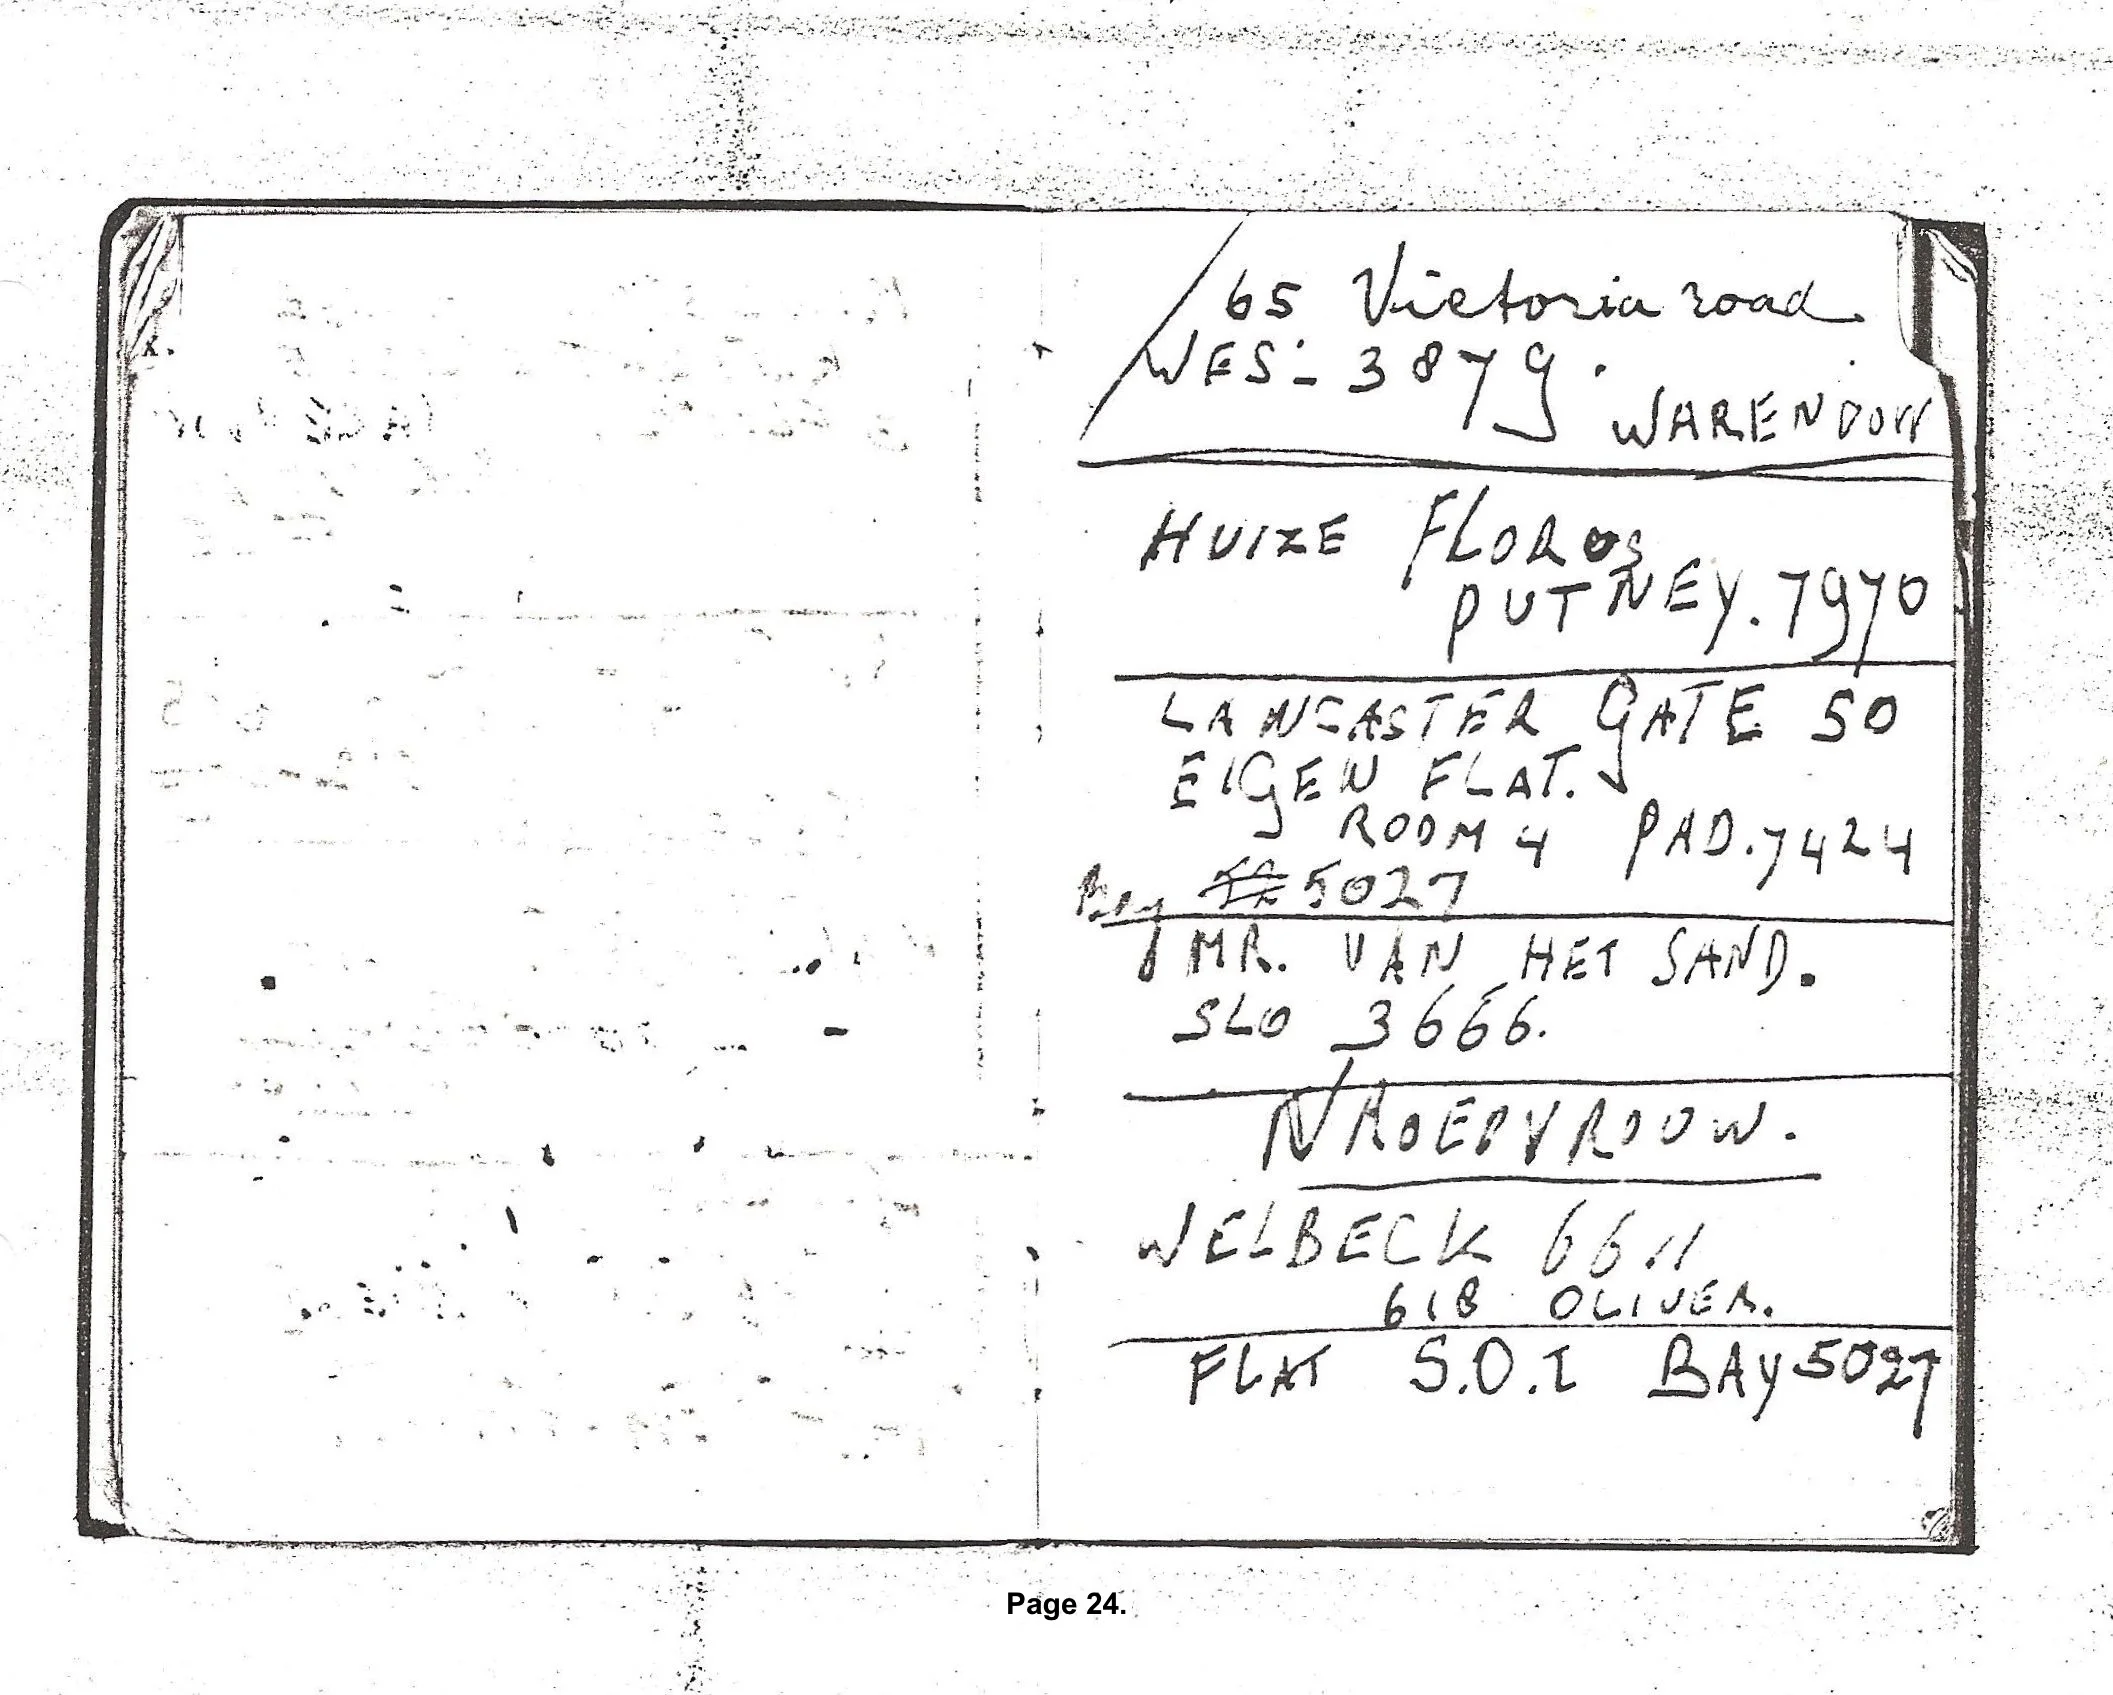 65 Victoria road
WES:- 3879.
WARENDORF
HUIZE FLOROS
PUTNEY. 7970
LANCASTER GATE 50
EIGEN FLAT.
ROOM 4 PAD. 7424
Bay 5027
MR. VAN HET SAND.
SLO 3666.
WELBECK 6611
618 OLIVER.
FLAT S.O.I BAY 5027
Page 24.